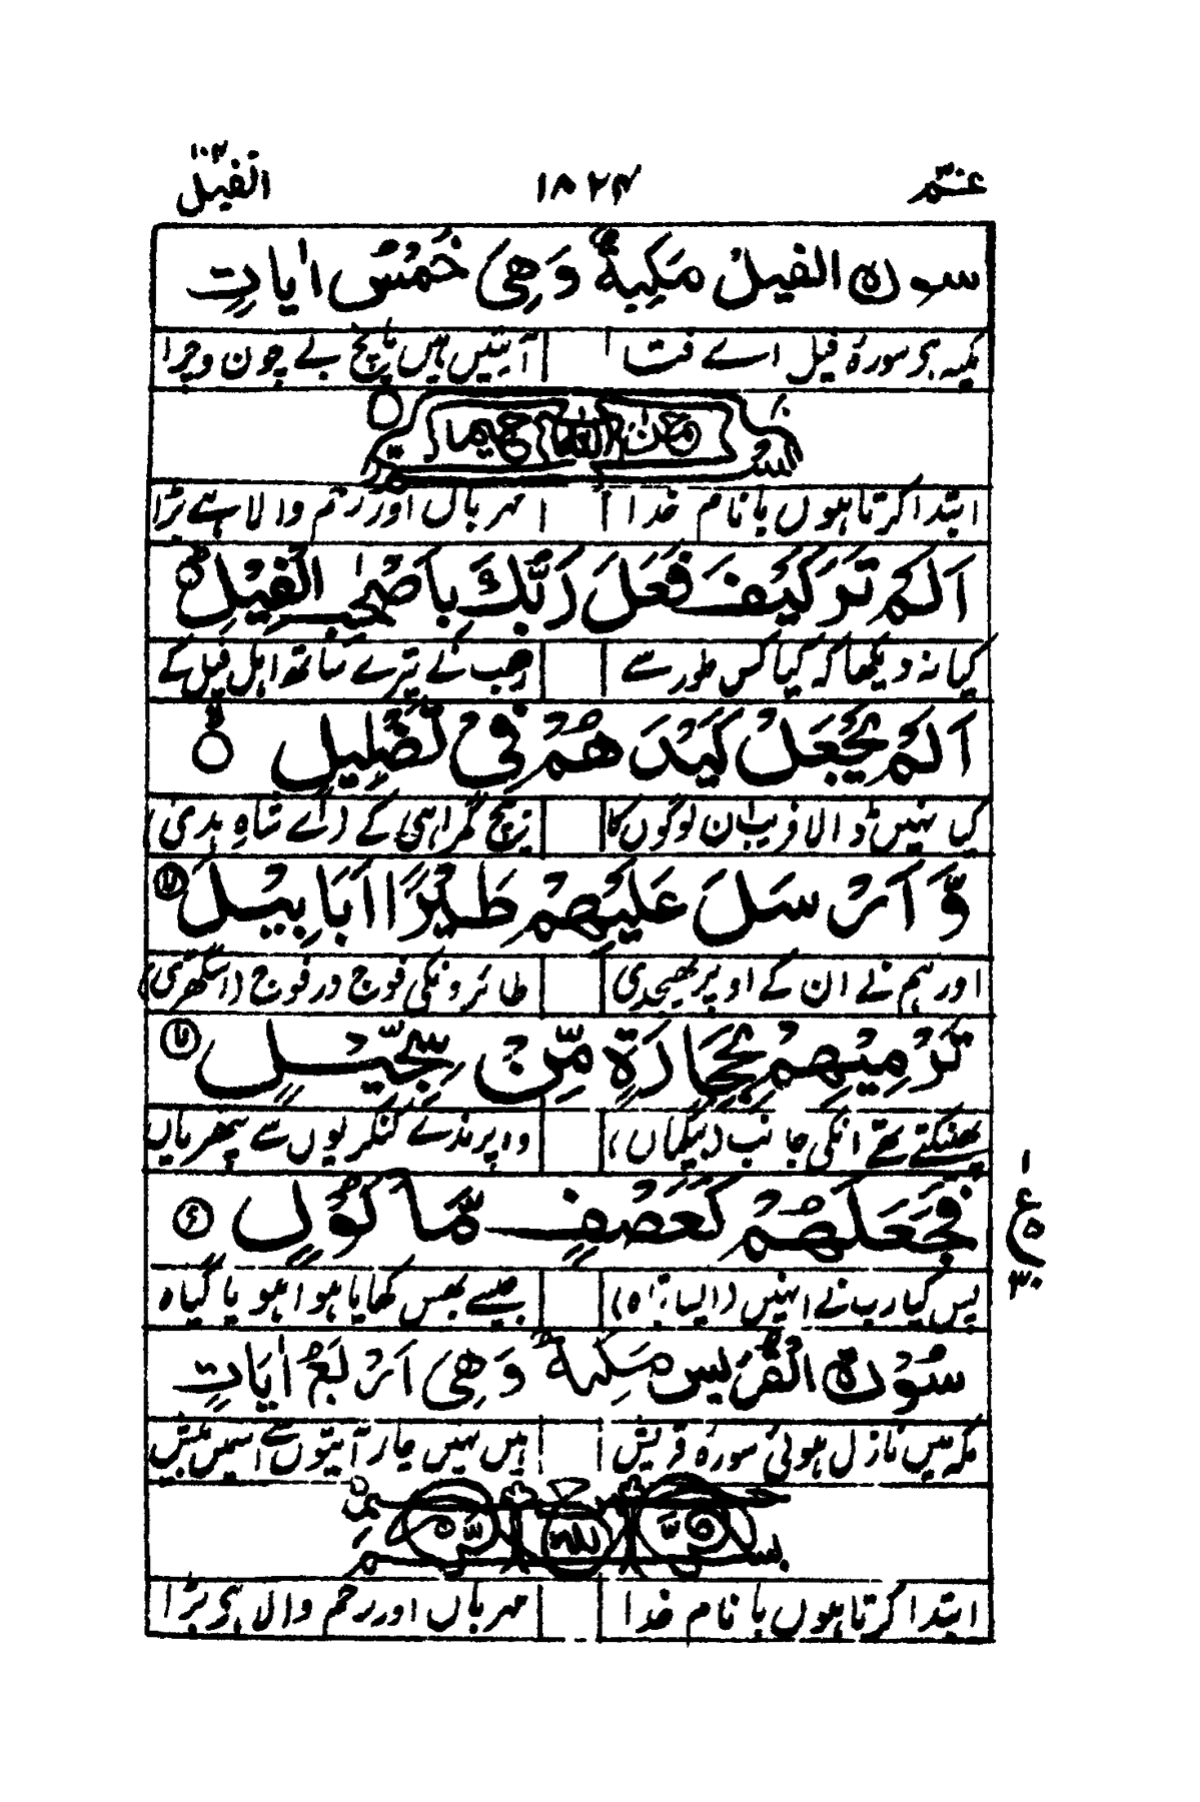 عـمّ ۱۸۲۴ الفیل ۱۰۵
سورة الفیل مکیةٌ وَهِیَ خَمسٌ اٰیاتِ
مکیہ ہی سورۂ فیل اے فتا آیتیں ہیں پانچ بے چون وچرا
بِسم اللہ الرحمٰن الرحیم
ابتدا کرتا ہوں با نام خدا مہرباں اور رحم والا ہے بڑا
اَلَمْ تَرَ کَیْفَ فَعَلَ رَبُّكَ بِاَصْحٰبِ الْفِیْلِ
کیا نہ دیکھا کہ کیا کس طور سے رب نے تیرے ساتھ اہل فیل کے
اَلَمْ یَجْعَلْ کَیْدَ هُمْ فِیْ تَضْلِیْلٍ
کیا نہیں ڈالا فریب ان لوگوں کا بیچ گمراہی کے (اے شاہِ ہدیٰ)
وَّ اَرْ سَلَ عَلَیْهِمْ طَیْرًا اَبَا بِیْلَ
اور ہم نے ان کے اوپر بھیجدی طائرونکی فوج در فوج
تَرْ مِیْهِمْ بِحِجَا رَةٍ مِّنْ سِجِّیْلٍ
پھینکتے تھے انکی جانب (بیگماں) وہ پرندے کنکریوں سے
فَجَعَلَهُمْ کَعَصْفٍ مَّا کُوْلٍ
پس کیا رب نے انہیں جیسے بھس کھایا ہوا ہو یا گیاہ
۱ ع ۵ ۳۰
سُوْرَةُ الْقُرَیس مَکِیةٌ وَهِیَ اَرْ بَعُ اٰیَاتِ
مکہ میں نازل ہوئی سورہ قریش ہیں نہیں چار آیتوں سے اسمیں بیش
بسم اللہ الرحمن الرحیم
ابتدا کرتا ہوں با نام خدا مہرباں اور رحم والا ہی بڑا